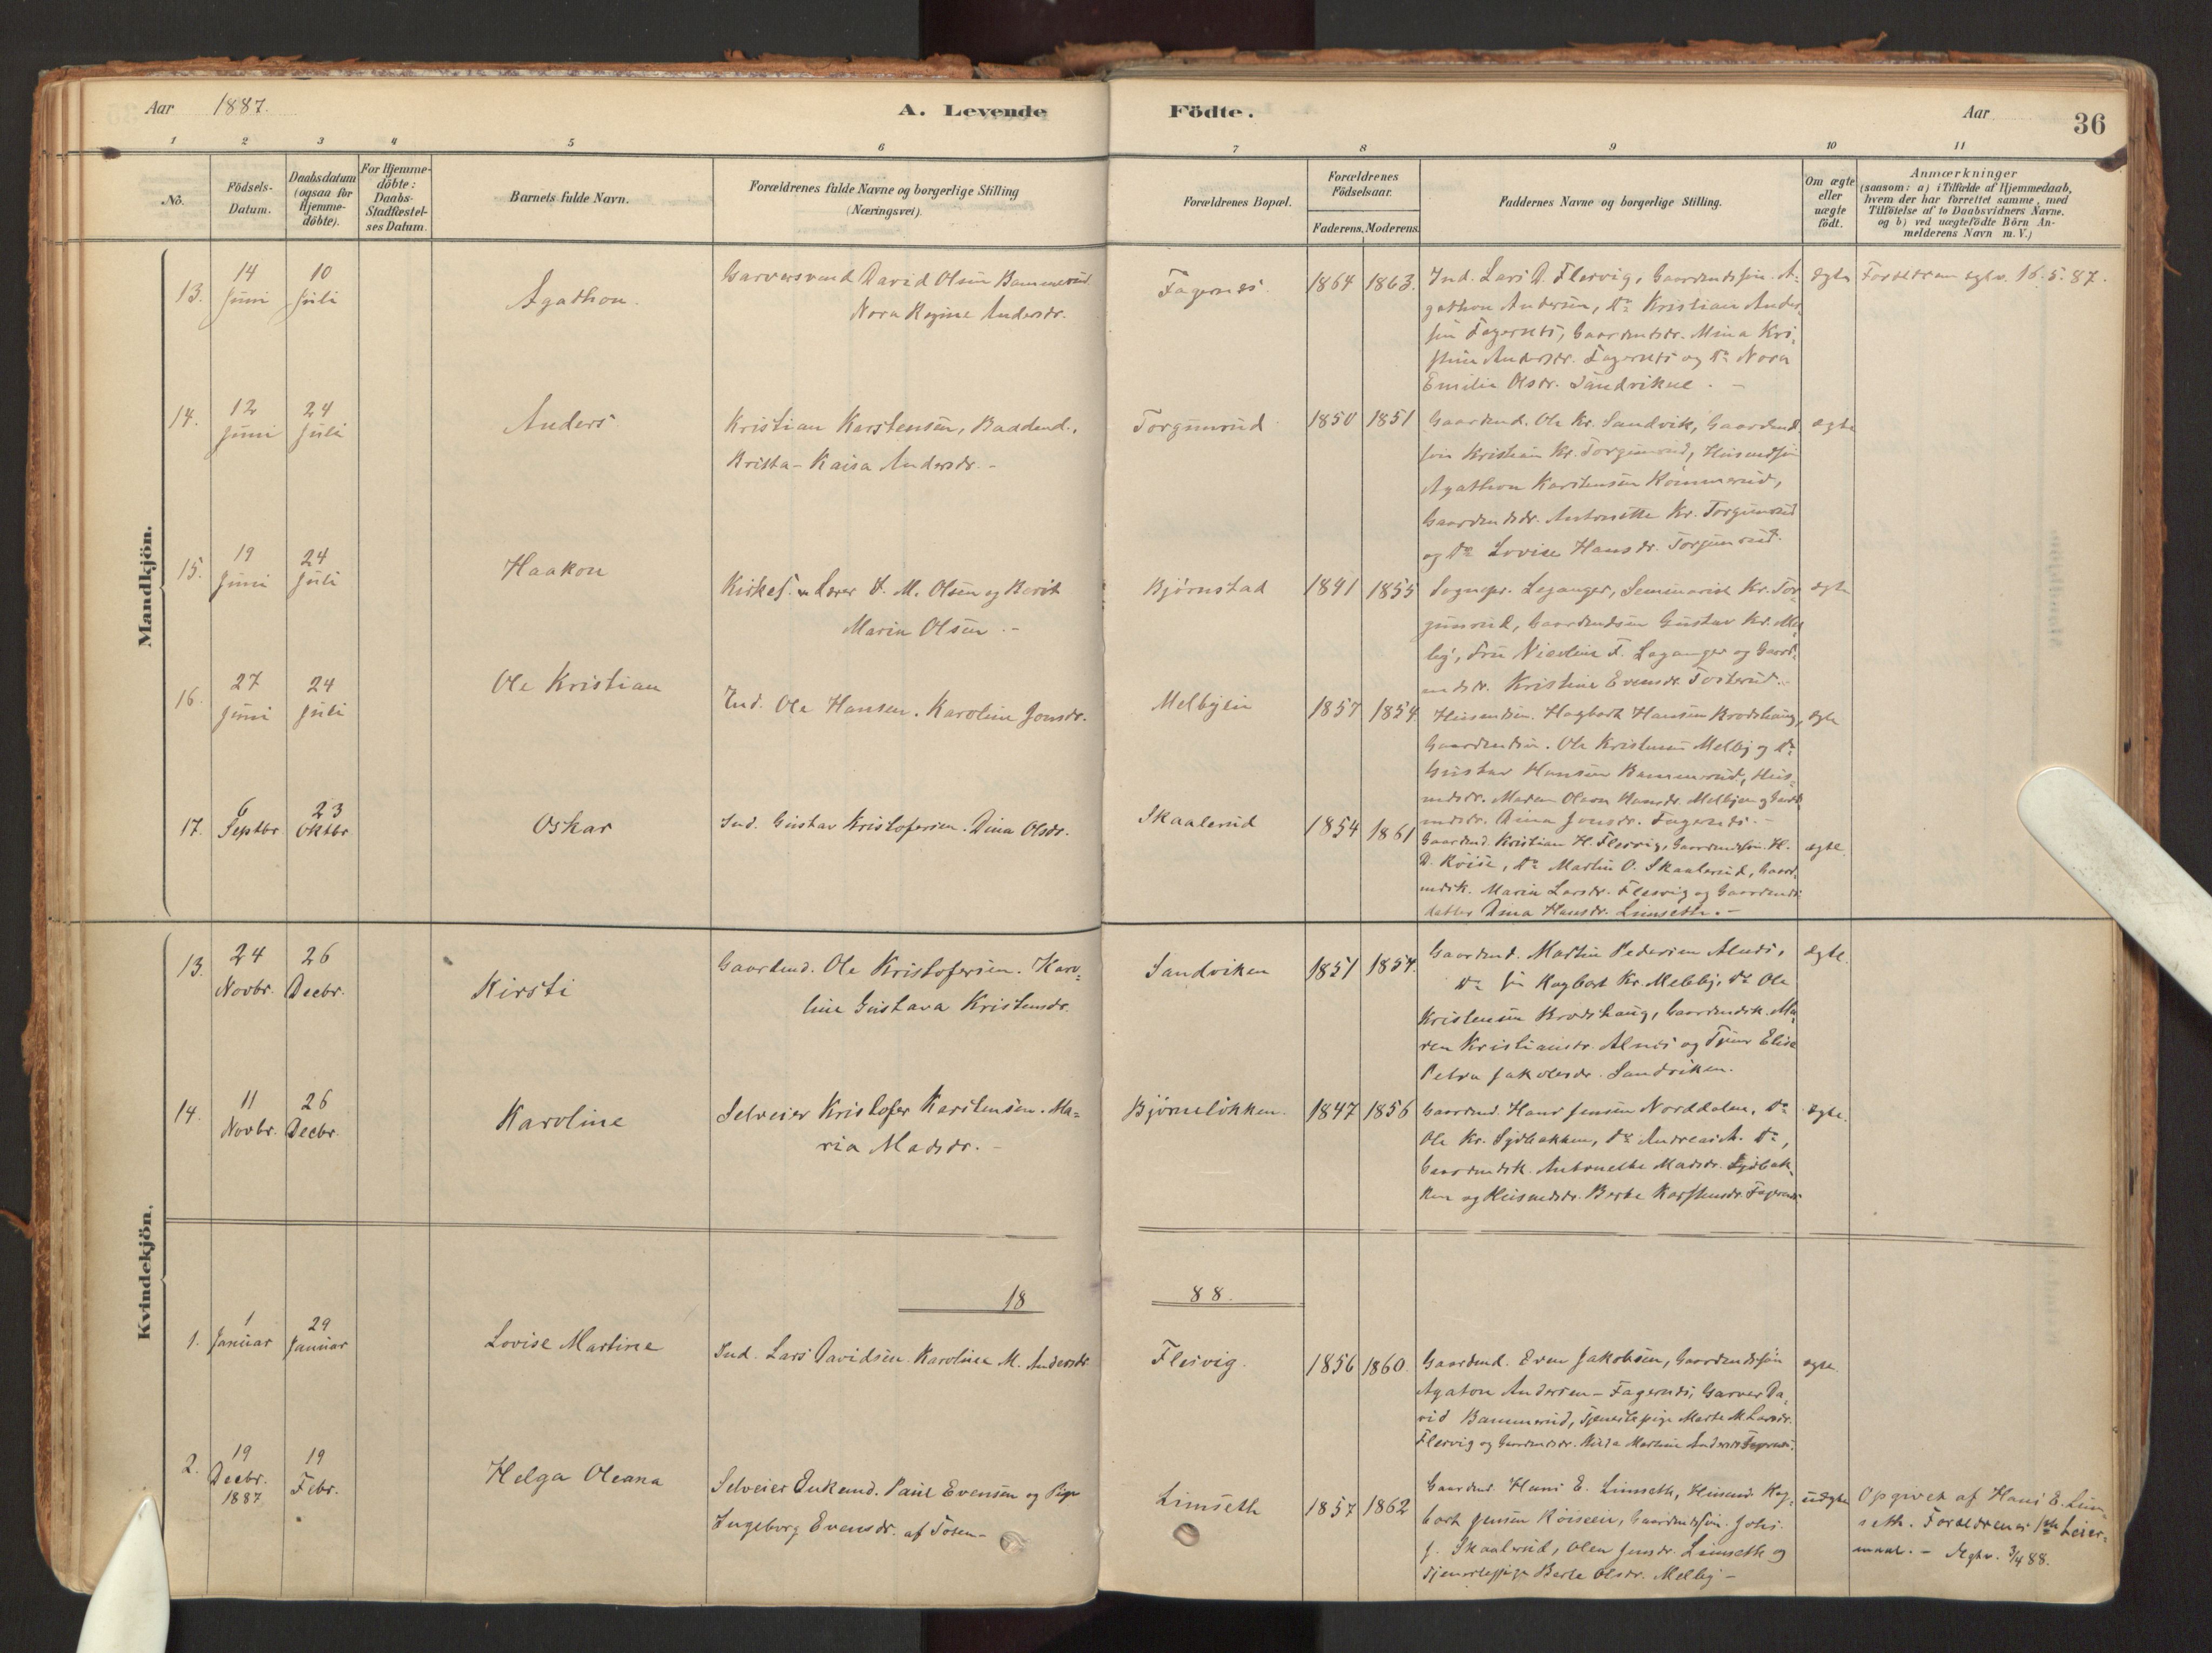 Aar 1887.
A. Levende Födte.
Aar
36
1 2 3 4 5 6 7 8 9 10 11
No.
Födsels-Datum.
Daabsdatum (ogsaa for Hjemme-döbte).
For Hjemme-döbte: Daabs-Stadfæstel-ses Datum.
Barnets fulde Navn.
Forældrenes fulde Navne og borgerlige Stilling (Næringsvei).
Forældrenes Bopæl.
Forældrenes Födselsaar.
Faderens. Moderens.
Faddernes Navne og borgerlige Stilling.
Om ægte eller uægte födt.
Anmærkninger
(saasom: a) i Tilfælde af Hjemmedaab,
hvem der har forrettet samme, med
Tilföielse af to Daabsvidners Navne.
og b) ved uægtefödte Börn An-
melderens Navn m. V.)
Mandkjön.
13. 14 Juni 10 Juli Agathon.
Garversvend David Olsen Bammerud.
Nora Regine Andersdr.
Fagernes 1864 1863.
Ind. Lars D. Flesvig, Gaardmdssön A-
gathon Andersen, do Kristian Ander-
sen Fagernes, Gaardmdsdr. Mina Kri-
stine Andersdr. Fagernes og do Nora
Emilie Olsdr. Sandvikne. -
ægte Forældrene egtv. 16.5.87.
14. 12 Juni 24 Juli Anders
Kristian Karstensen,
Britta-Kaisa Andersdr. -
Torgunrud 1850 1851
Gaardmd. Ole Kr. Sandvik, Gaardmd-
sön Kristian Kr. Torgunrud, Husmdsön
Agathon Karstensen Kommerud,
Gaardmdsdr. Antonette Kr. Torgunrud
og do Lovise Hansdr. Torgunrud.
ægte
15. 19 Juni 24 Juli Haakon
Kirkes. & Lærer O. M. Olsen og Berit
Marie Olsen. -
Bjørnstad 1841 1855
Sognepr. Leganger, Seminarist Kr. Tor-
gunrud, Gaardmdsön Gustav Kr. Mel-
by, Fru Nicoline F. Leganger og Gaard-
mdsdr. Kristine Evensdr. Tosterud. -
ægte
16. 27 Juni 24 Juli Ole Kristian
Ind. Ole Hansen. Karoline Jonsdr.
Melbyein 1857 1854
Husmdsön. Hagbart Hansen Brodshaug,
Gaardmdsön. Ole Kristensen Melby og do
Gustav Hansen Bammerud, Hus-
mdsdr. Maren Olava Hansdr. Melbyein og Gaard-
mdsdr. Dina Jonsdr. Fagernes. -
ægte
17. 6 Septbr. 23 Oktbr. Oskar
Ind. Gustav Kristofersen. Dina Olsdr.
Skaalerud 1854 1861
Gaardmd. Kristian H. Flesvig, Gaardmdssön. H.
D. Röise, do Martin O. Skaalerud, Gaard-
mdsk. Marie Larsdr. Flesvig og Gaardmds-
datter Dina Hansdr. Limseth. -
ægte.
Kvindekjön.
13. 24 Novbr. 26 Decbr. Kirsti
Gaardmd. Ole Kristofersen. Karo-
line Gustava Kristensdr.
Sandviken 1851 1854.
Gaardmd. Martin Pedersen Alnes,
do sön Hagbart Kr. Melby, do Ole
Kristensen Brodshaug, Gaardmdsk. Ma-
ren Kristiansdr. Alnes og Tjener Elise
Petra Jakobsdr. Sandviken.
ægte.
14. 11 Novbr. 26 Decbr. Karoline
Selveier Kristofer Karstensen. Ma-
ria Madsdr. -
Bjørneløkken. 1847 1856
Gaardmd. Hans Jensen Norddalen, do
Ole Kr. Sydbakken, do Andreas A. do,
Gaardmdsk. Antonette Madsdr. Sydbak-
ken og Husmdsdr. Berte Karstensdr. Fagernes
ægte.
18 88.
1. 1 Januar 29 Januar Lovise Martine
Ind. Lars Davidsen. Karoline M. Andersdr
Flesvig. 1856 1860.
Gaardmd. Even Jakobsen, Gaardmdssön
Agaton Andersen - Fagernes, Garver Da-
vid Bammerud, Tjenestepige Marte M. Larsdr.
Flesvig og Gaardmdsdr. Hilda Martine Andersdr Fagernes.
ægte.
2. 19 Decbr. 1887 19 Febr. Helga Oleana
Selveier Enkemd. Paul Evensen og Pige
Ingeborg Evensdr. af Tosen-
Limseth 1857 1862
Gaardmd. Hans E. Limseth, Husmd. Hag-
bart Jensen Röiseen, Gaardmdssön. Johs.
J. Skaalerud, Olea Jensdr. Limseth og
Tjenestepige Berte Olsdr. Melby -
uægte
Opgivet af Hans E. Lim-
seth. Forældrenes 1ste Leier-
maal. - Egtv. 3/4 88.